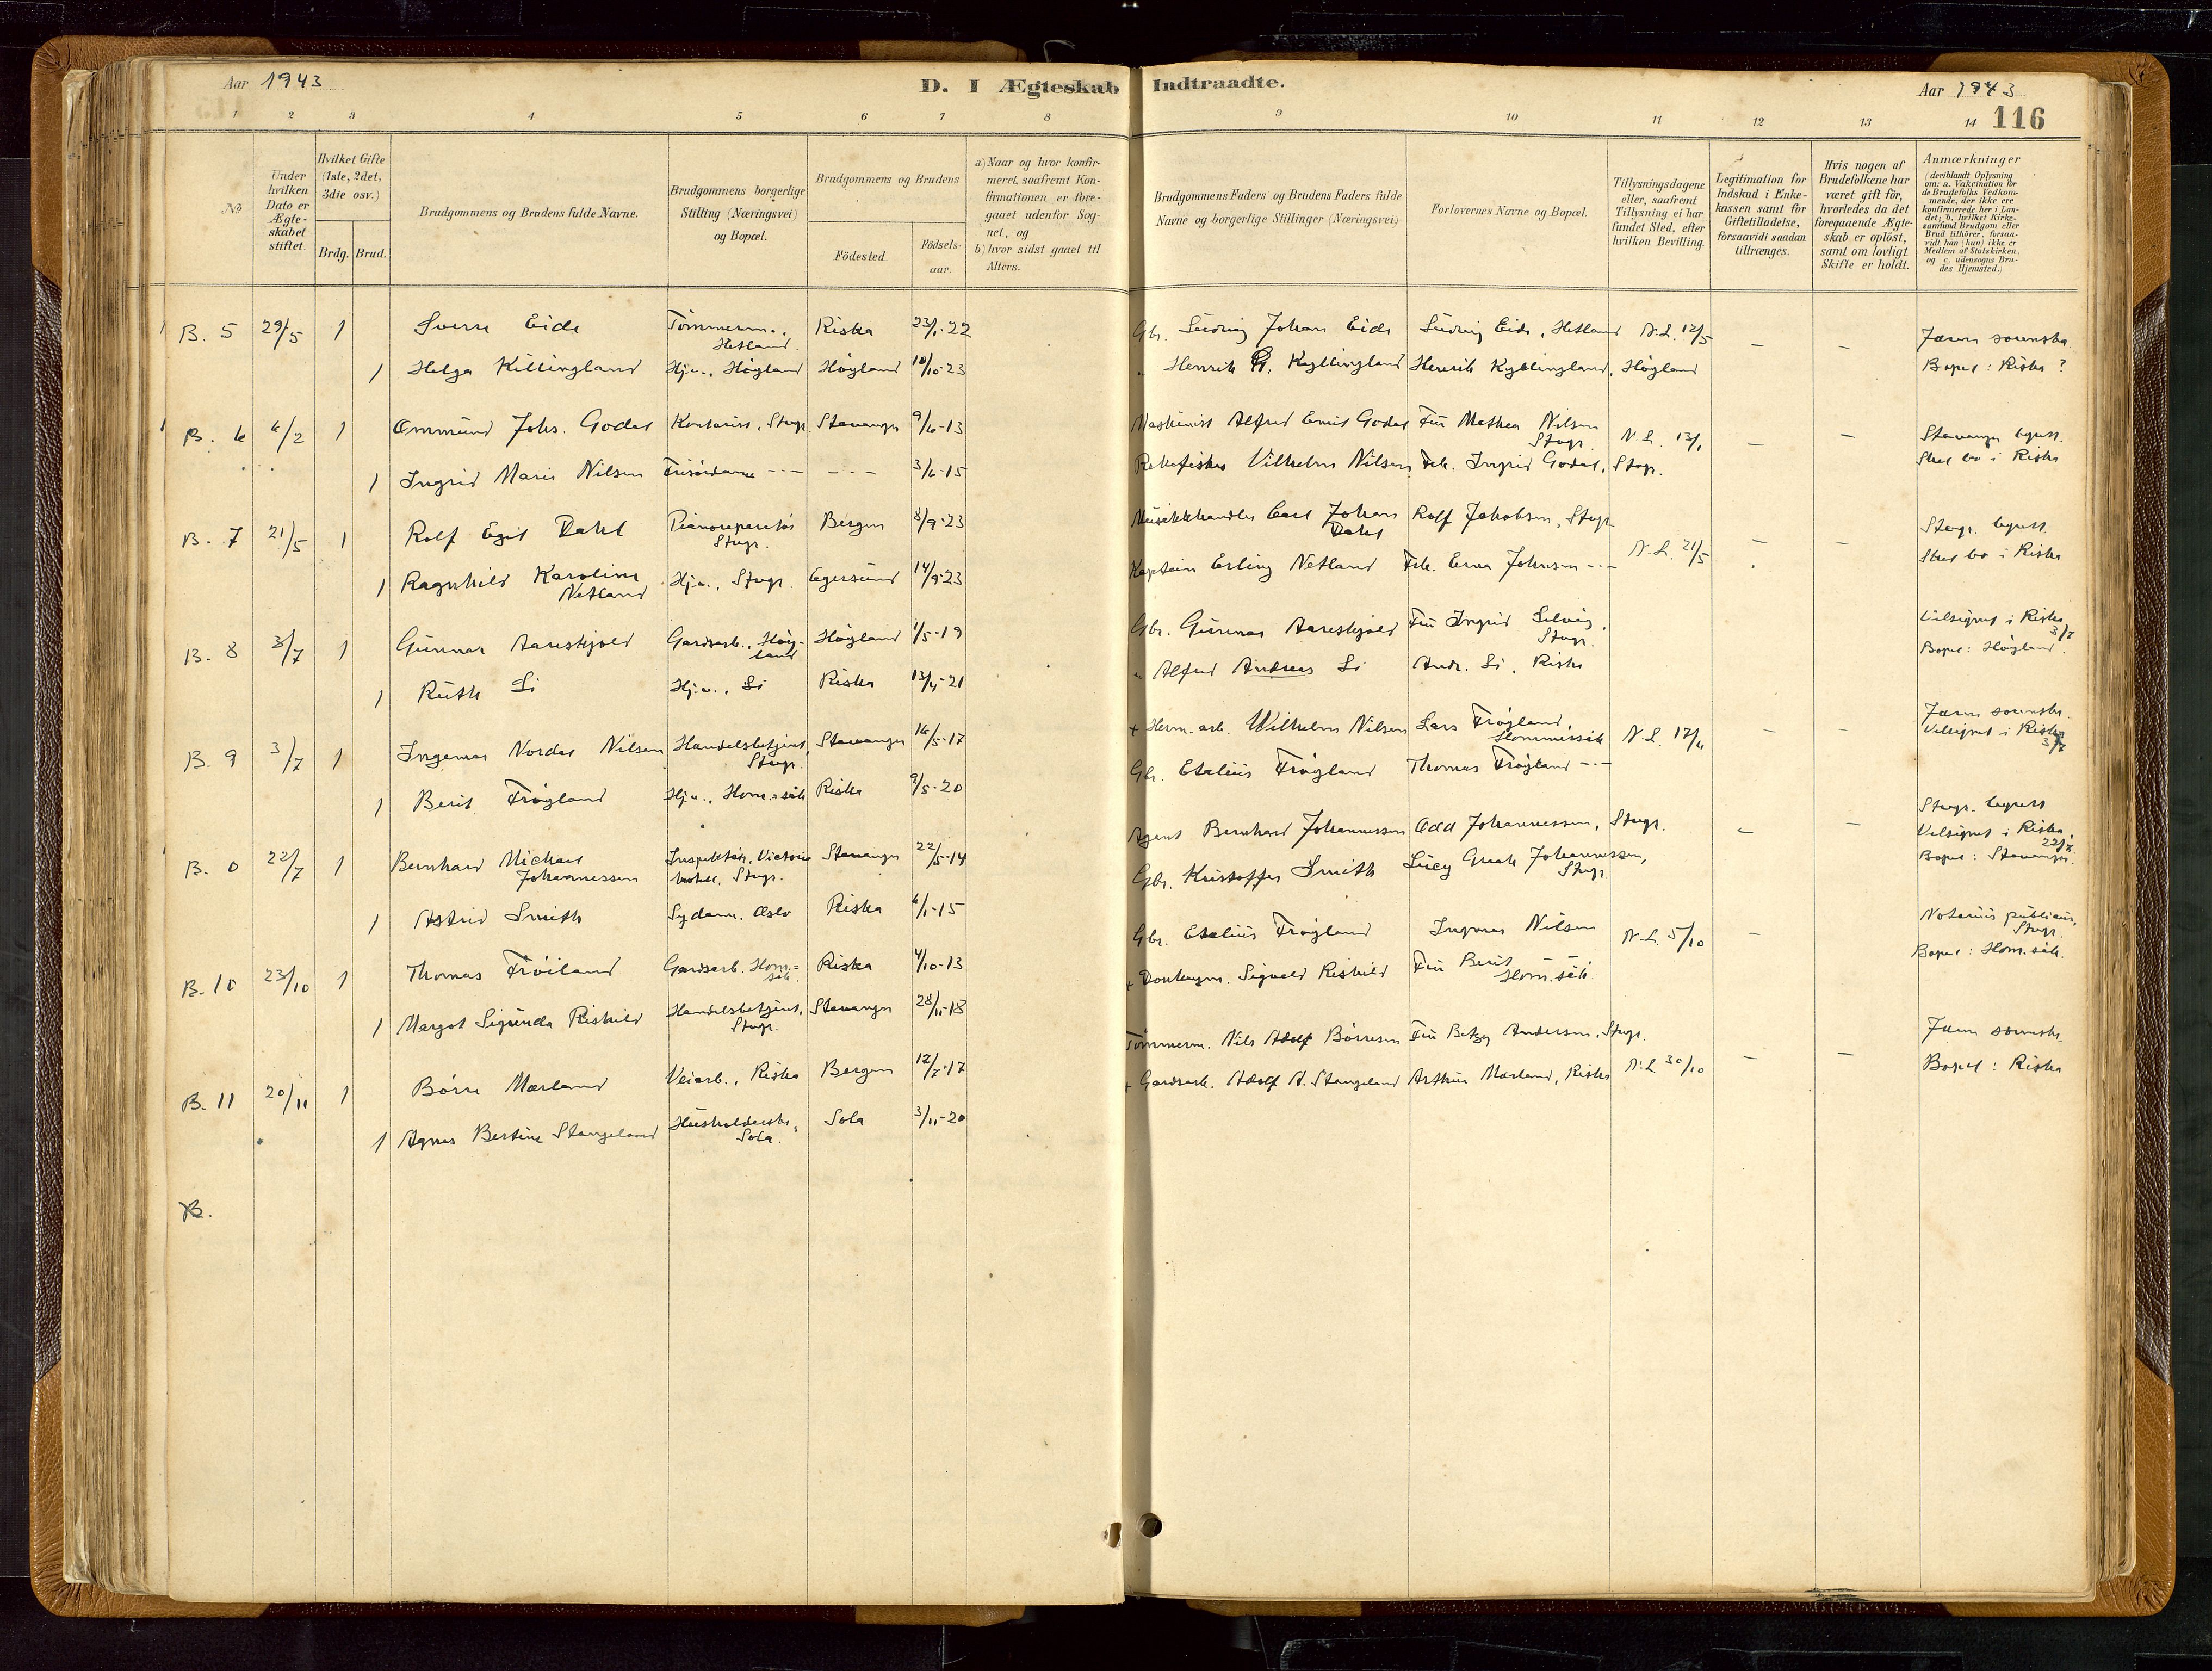 Aar 1943
D. I Ægteskab Indtraadte.
Aar 1943
116
1 2 3 4 5 6 7 8 9 10 11 12 13 14
No
Under hvilken Dato er Ægteskabet stiftet.
Hvilket Gifte (1ste, 2det, 3die osv.)
Brdg. Brud.
Brudgommens og Brudens fulde Navne.
Brudgommens borgerlige Stilling (Næringsvei) og Bopæl.
Brudgommens og Brudens
Födested.
Födselsaar.
a) Naar og hvor konfirmeret, saafremt Konfirmationen er foregaaet udenfor Sognet, og
b) hvor sidst gaaet til Alters.
Brudgommens Faders og Brudens Faders fulde Navne og borgerlige Stillinger (Næringsvei)
Forlovernes Navne og Bopæl.
Tillysningsdagene eller, saafremt Tillysning ei har fundet Sted, efter hvilken Bevilling.
Legitimation for Indskud i Enkekassen samt for Giftetilladelse, forsaavidt saadan tiltrænges.
Hvis nogen af Brudefolkene har været gift för, hvorledes da det foregaaende Ægteskab er oplöst, samt om lovligt Skifte er holdt.
Anmærkninger (deriblandt Oplysning om: a. Vakcination for de Brudefolks Vedkommende, der ikke ere konfirmerede her i Landet; b. hvilket Kirkesamfund Brudgom eller Brud tilhörer, forsaavidt han (hun) ikke er Medlem af Statskirken, og c. udensogns Brudes Hjemsted.)
B. 5 29/5 1 Sverre Eide Tømmerm., Hetland. Riska 23/1-22 Gbr. Ludvig Johan Eide Ludvig Eide, Hetland N.L. 12/5 – – Jæren sorensk.
1 Helga Killingland Hj.v., Høgland Høgland 10/10-23 " Henrik G. Kyllingland Henrik Kyllingland, Høgland Bopel: Riska ?
B. 6 6/2 1 Ommund Johs. Godal Kontorist, Stvgr. Stavanger 9/6-13 Maskinist Alfred Emil Godal Fru Mathea Nilsen Stvgr. N.L. 13/1 – – Stavanger byrett.
1 Ingrid Marie Nilsen Frisørdame --- --- 3/6-15 Rekefisker Vilhelm Nilsen Frk. Ingrid Godal, Stvgr. Skal bo i Riska
B. 7 21/5 1 Rolf Egil Dahl Pianoreparatør Stvgr. Bergen 8/9-23 Musikkhandler Carl Johan Dahl Rolf Jakobsen, Stvgr. N.L. 21/5 – – Stvgr. byrett.
1 Ragnhild Karoline Netland Hj.v., Stvgr. Egersund 14/9-23 Kaptein Erling Netland Frk. Erna Johnsen --- Skal bo i Riska
B. 8 3/7 1 Gunnar Aareskjold Gardsarb., Høgland Høgland 1/5-19 Gbr. Gunnar Aareskjold Fru Ingrid Selvig, Stvgr. Velsignet i Riska 3/7
1 Ruth Li Hj.v., Li Riska 13/4-21 " Alfred Andreas Li Andr. Li, Riska Bopel: Høgland.
B. 9 3/7 1 Ingemar Nordal Nilsen Handelsbetjent, Stvgr. Stavanger 16/5-17 + Herm. arb. Wilhelm Nilsen Lars Frøyland, Hommersåk N.L. 17/4 – – Jæren sorensk.
1 Berit Frøyland Hj.v., Hom.=såk Riska 9/5-20 Gbr. Etelius Frøyland Thomas Frøyland --- Velsignet i Riska 3/7
B. 0 22/7 1 Bernhard Michael Johannessen Inspektør, Victoria hotell, Stvgr. Stavanger 22/5-14 Agent Bernhard Johannessen Odd Johannessen, Stvgr. – – Stvgr. byrett
1 Astrid Smith Sydame, Oslo Riska 6/1-15 Gbr. Kristoffer Smith Lucy Johannessen, Stvgr. Velsignet i Riska, 22/7 Bopel: Stavanger.
B. 10 23/10 1 Thomas Frøiland Gardsarb. Hom.=såk. Riska 4/10-13 Gbr. Etelius Frøyland Ingemar Nilsen N.L. 5/10 – Notarius publicus, Stvgr.
1 Margot Sigunda Riskild Handelsbetjent, Stvgr. Stavanger 28/11-13 + Donkeym. Sigvald Riskild Fru Berit – Hom.såk. Bopel: Hom.såk.
B. 11 20/11 1 Børre Mæland Veiarb., Riska Bergen 12/7-17 Tømmerm. Nils Adolf Børresen Fru Betzy Andersen, Stvgr. N.L. 30/10 – – Jæren sorensk.
1 Agnes Bertine Stangeland Husholderske, Sola. Sola 3/11-20 + Gardsarb. Adolf A. Stangeland Arthur Mæland, Riska Bopel: Riska
B.